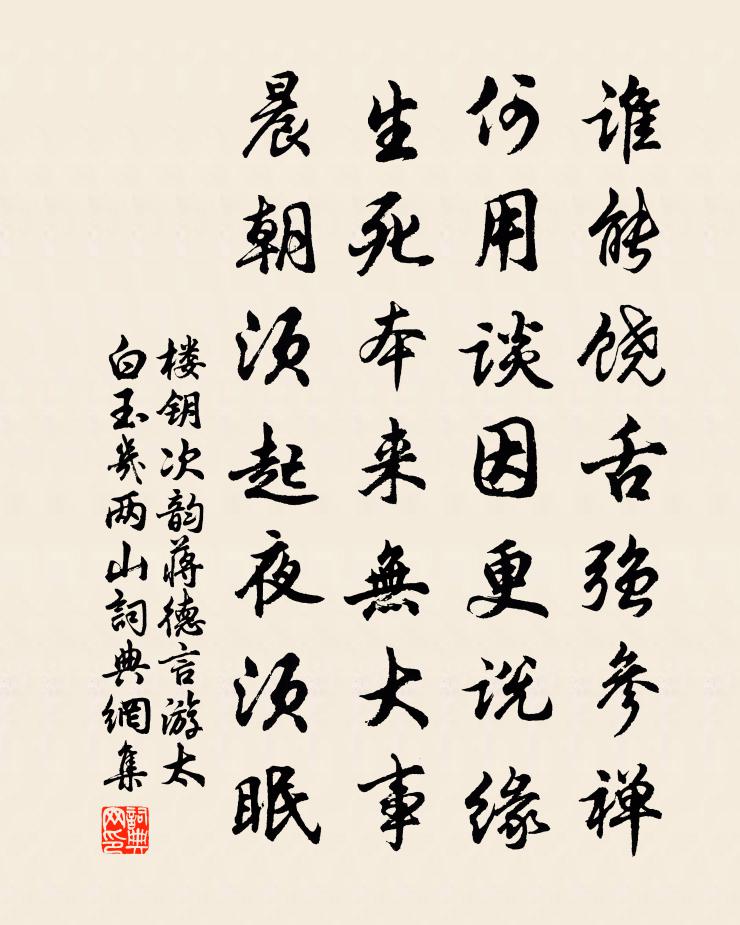 谁能饶舌强参禅
何用谈因更说缘
生死本来無大事
晨朝须起夜须眠
楼钥次韵蒋德言游太
白玉几两山詞典網集
詞典
网印